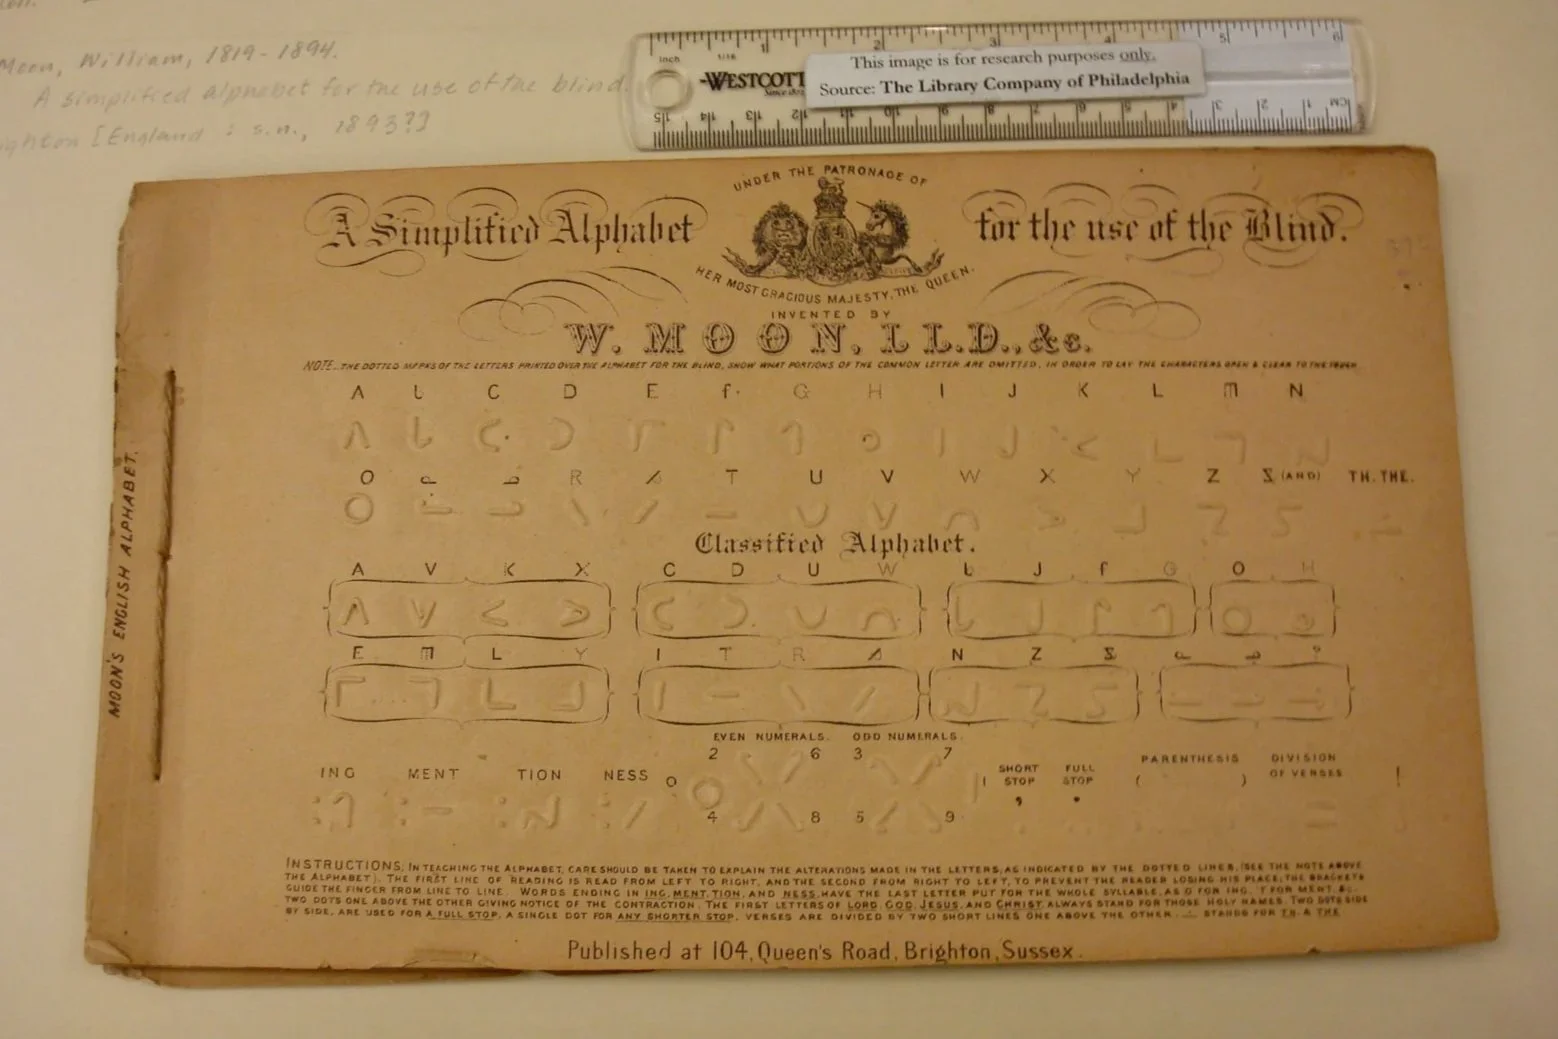 Moon, William, 1819-1894.
A simplified alphabet for the use of the blind.
[England : s.n., 1893?]
inch 1/16 1 2 3 4 5 6
WESTCOTT
Since 1872
This image is for research purposes only.
Source: The Library Company of Philadelphia
15 14 13 12 11 10 9 8 7 6 5 4 3 2 1 CM
UNDER THE PATRONAGE OF
A Simplified Alphabet for the use of the Blind.
HER MOST GRACIOUS MAJESTY, THE QUEEN.
INVENTED BY
W. MOON, LL.D., &c.
NOTE._THE DOTTED MARKS OF THE LETTERS PRINTED OVER THE ALPHABET FOR THE BLIND, SHOW WHAT PORTIONS OF THE COMMON LETTER ARE OMITTED, IN ORDER TO LAY THE CHARACTERS OPEN & CLEAR TO THE TOUCH
A b C D E f G H I J K L M N
O P Q R S T U V W X Y Z & (AND) TH. THE.
Classified Alphabet.
A V K X C D U W b J f G O H
E M L Y I T R S N Z & P Q ?
EVEN NUMERALS. ODD NUMERALS.
2 6 3 7
ING MENT TION NESS 0 1 SHORT STOP FULL STOP PARENTHESIS DIVISION OF VERSES !
, . ( )
4 8 5 9
INSTRUCTIONS; IN TEACHING THE ALPHABET, CARE SHOULD BE TAKEN TO EXPLAIN THE ALTERATIONS MADE IN THE LETTERS, AS INDICATED BY THE DOTTED LINES, (SEE THE NOTE ABOVE
THE ALPHABET). THE FIRST LINE OF READING IS READ FROM LEFT TO RIGHT, AND THE SECOND FROM RIGHT TO LEFT, TO PREVENT THE READER LOSING HIS PLACE; THE BRACKETS
GUIDE THE FINGER FROM LINE TO LINE. WORDS ENDING IN ING, MENT, TION, AND NESS HAVE THE LAST LETTER PUT FOR THE WHOLE SYLLABLE, AS G FOR ING, T FOR MENT, &c.
TWO DOTS ONE ABOVE THE OTHER GIVING NOTICE OF THE CONTRACTION. THE FIRST LETTERS OF LORD, GOD, JESUS, AND CHRIST ALWAYS STAND FOR THOSE HOLY NAMES. TWO DOTS SIDE
BY SIDE, ARE USED FOR A FULL STOP, A SINGLE DOT FOR ANY SHORTER STOP. VERSES ARE DIVIDED BY TWO SHORT LINES ONE ABOVE THE OTHER. STANDS FOR TH. & THE
Published at 104, Queen's Road, Brighton, Sussex.
MOON'S ENGLISH ALPHABET.